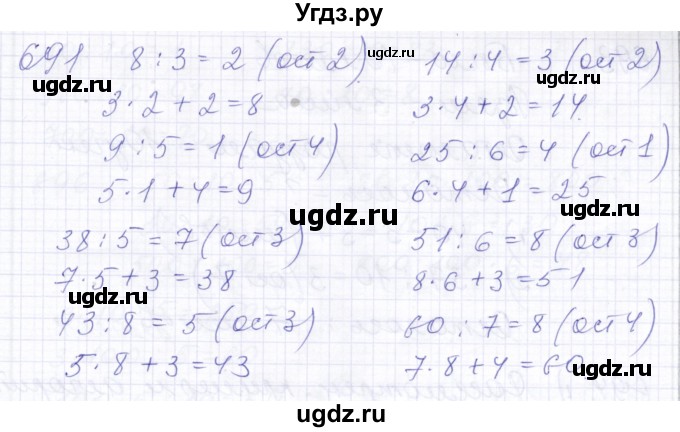 Угдз.ру
691 8 : 3 = 2 (ост 2) 14 : 4 = 3 (ост 2)
ugdz.ru ugdz.ru ugdz.ru
3 · 2 + 2 = 8 3 · 4 + 2 = 14
9 : 5 = 1 (ост 4) 25 : 6 = 4 (ост 1)
ugdz.ru ugdz.ru
5 · 1 + 4 = 9 6 · 4 + 1 = 25
ugdz.ru
38 : 5 = 7 (ост 3) 51 : 6 = 8 (ост 3)
ugdz.ru ugdz.ru
7 · 5 + 3 = 38 8 · 6 + 3 = 51
ugdz.ru
43 : 8 = 5 (ост 3) 60 : 7 = 8 (ост 4)
ugdz.ru ugdz.ru
5 · 8 + 3 = 43 7 · 8 + 4 = 60
ugdz.ru
ugdz.ru